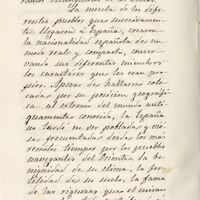 La mezcla de los dife-
rentes pueblos que sucesivamente
llegaron á España, crearon
la nacionalidad española de un
modo real y compacto, conser-
vando sus diferentes miembros
los caracteres que les eran pro-
pios. Apesar de hallarse colo-
cada por su posicion geográfi-
ca al extremo del mundo anti-
guamente conocido, la España
no tardó en ser poblada y ve-
nia presentada desde los mas
remotos tiempos por los pueblos
navegantes del Oriente; la be-
nignidad de su clima, la fer-
tilidad de su suelo, la fama
de las riquezas que el mismo